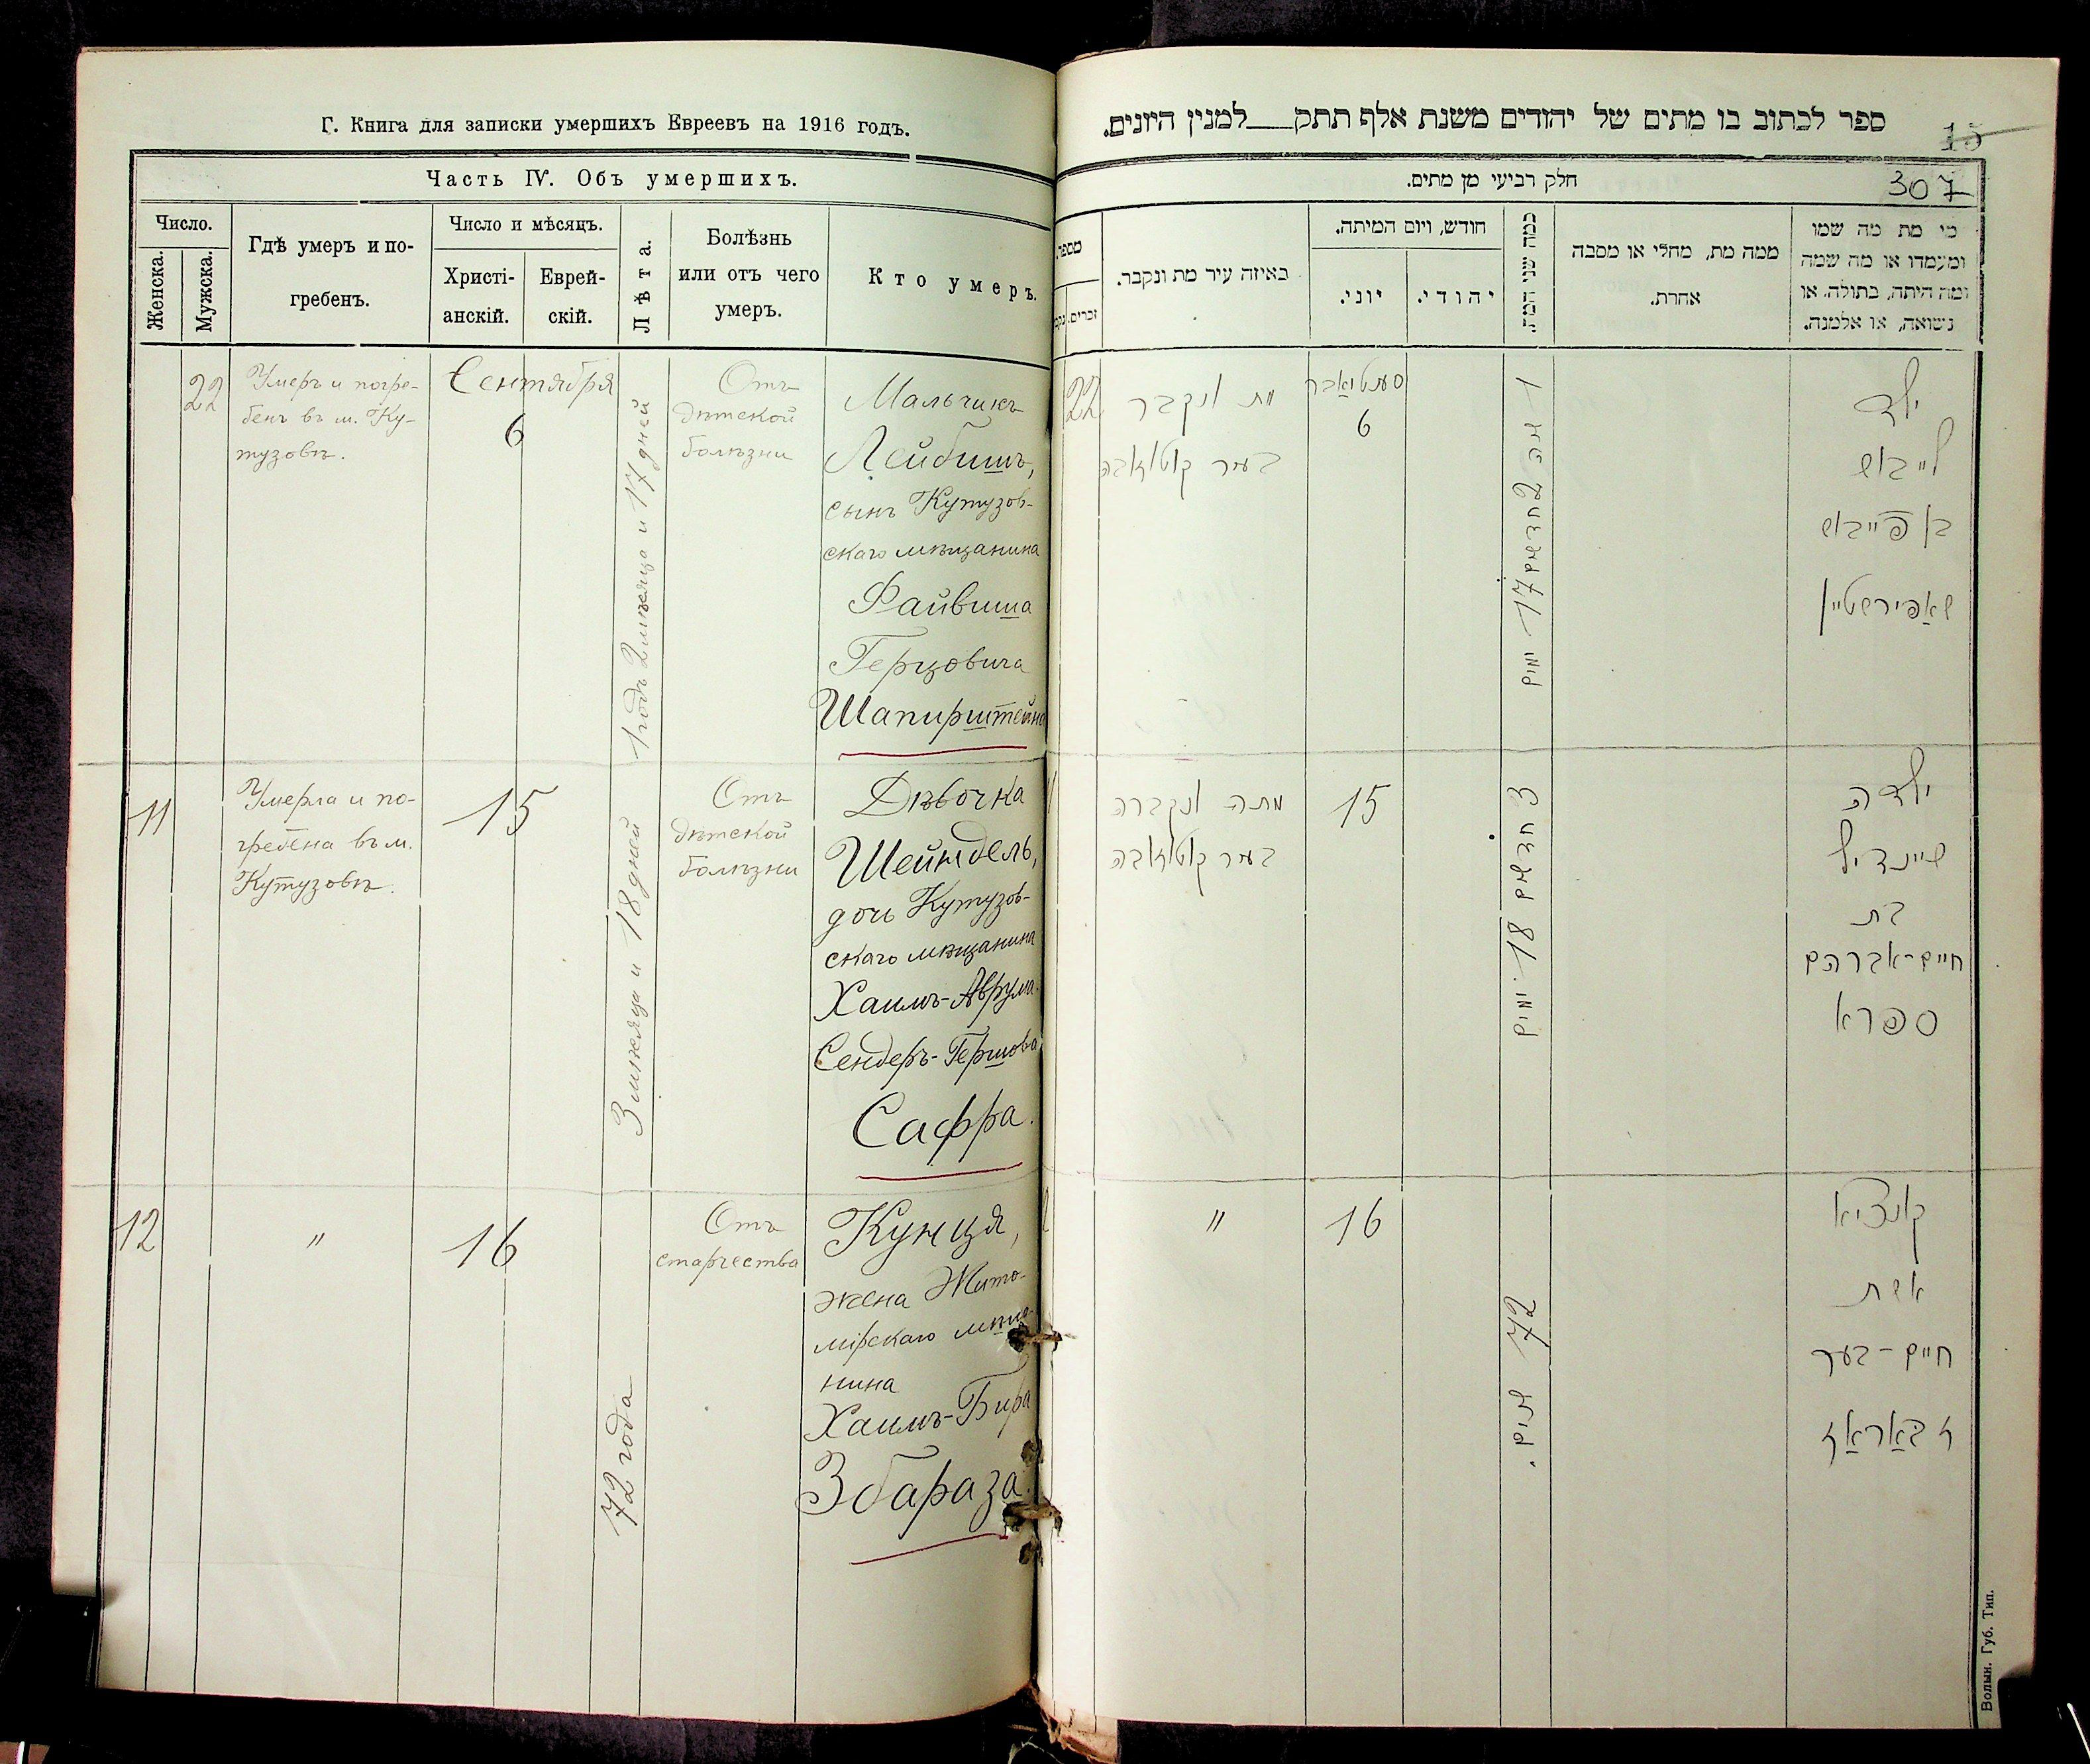 Г. Книга для записки умершихъ Евреевъ на 1916 годъ.
Часть IV. Объ умершихъ.
Число.
Женска.
Мужска.
Гдѣ умеръ и по-
гребенъ.
Число и мѣсяцъ.
Христі-
анскій.
Еврей-
скій.
Лѣта.
Болѣзнь
или отъ чего
умеръ.
Кто умеръ.
22
Умеръ и погре-
бенъ въ м. Ку-
тузовѣ.
Сентября
6
1 годъ 2 мѣсяца и 17 дней
Отъ
дѣтской
болѣзни
Мальчикъ
Лейбишъ,
сынъ Кутузов-
скаго мѣщанина
Файвиша
Герцовича
Шапирштейна
11
Умерла и по-
гребена въ м.
Кутузовѣ.
15
3 мѣсяца и 18 дней
Отъ
дѣтской
болѣзни
Дѣвочка
Шейндель,
дочь Кутузов-
скаго мѣщанина
Хаимъ-Аврума
Сендеръ-Гершова
Сафра.
12
"
16
72 года
Отъ
старчества
Кунця,
жена Жито-
мірскаго мѣща-
нина
Хаимъ-Бира
Збараза.
ספר לכתוב בו מתים של יהודים משנת אלף תתק___למנין היונים.
15
חלק רביעי מן מתים.
307
מספר
זכרים.
באיזה עיר מת ונקבר.
חודש, ויום המיתה.
יוני.
יהודי.
כמה שני המת.
ממה מת, מחלי או מסבה
אחרת.
מי מת מה שמו
ומעמדו או מה שמה
ומה היתה, בתולה, או
נשואה, או אלמנה.
22
מת ונקבר
בעיר קוטוזובה
סענטיאבר
6
1 שנה 2 חדשים 17 ימים
ילד
לייבוש
בן פייבוש
שאפירשטיין
מתה ונקברה
בעיר קוטוזובה
15
3 חדשים 18 ימים
ילדה
שיינדיל
בת
חיים-אברהם
ספרא
"
16
72 שנים.
קונציא
אשת
חיים-בער
זבאראז
Волын. Губ. Тип.